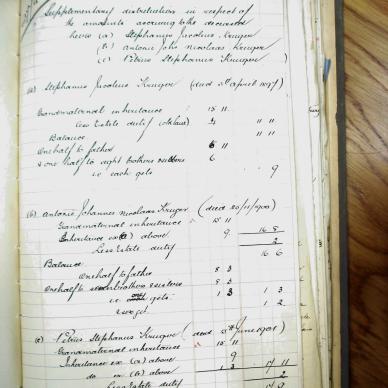 Supplementary distribution in respect of
the amounts accruing to the deceased
heirs (a) Stephanus Jacobus Kruger
(b) Antonie Joh Nicolaas Kruger
(c) Petrus Stephanus Kruger
(a) Stephanus Jacobus Kruger (died 5th April 1897)
Grandmaternal inheritance 15 11
less Estate duty
Balance " "
One half to father 6 11
& one half to eight brothers sisters 6
i.e. each gets 9
(b) Antonie Johannes Nicolaas Kruger (died 20/11/1900)
Grandmaternal inheritance 15 11
Inheritance ex (a) above 9 16 8
Less Estate duty 2
16 6
Balance
One half to father 8 3
One half to brothers & sisters 8 3
i.e. each gets 1 3 1 3
1 2
(c) Petrus Stephanus Kruger (died June 1901)
Grandmaternal inheritance 15 11
Inheritance ex (a) above 9
do ex (b) above 1 3 17 11
Less Estate duty 2